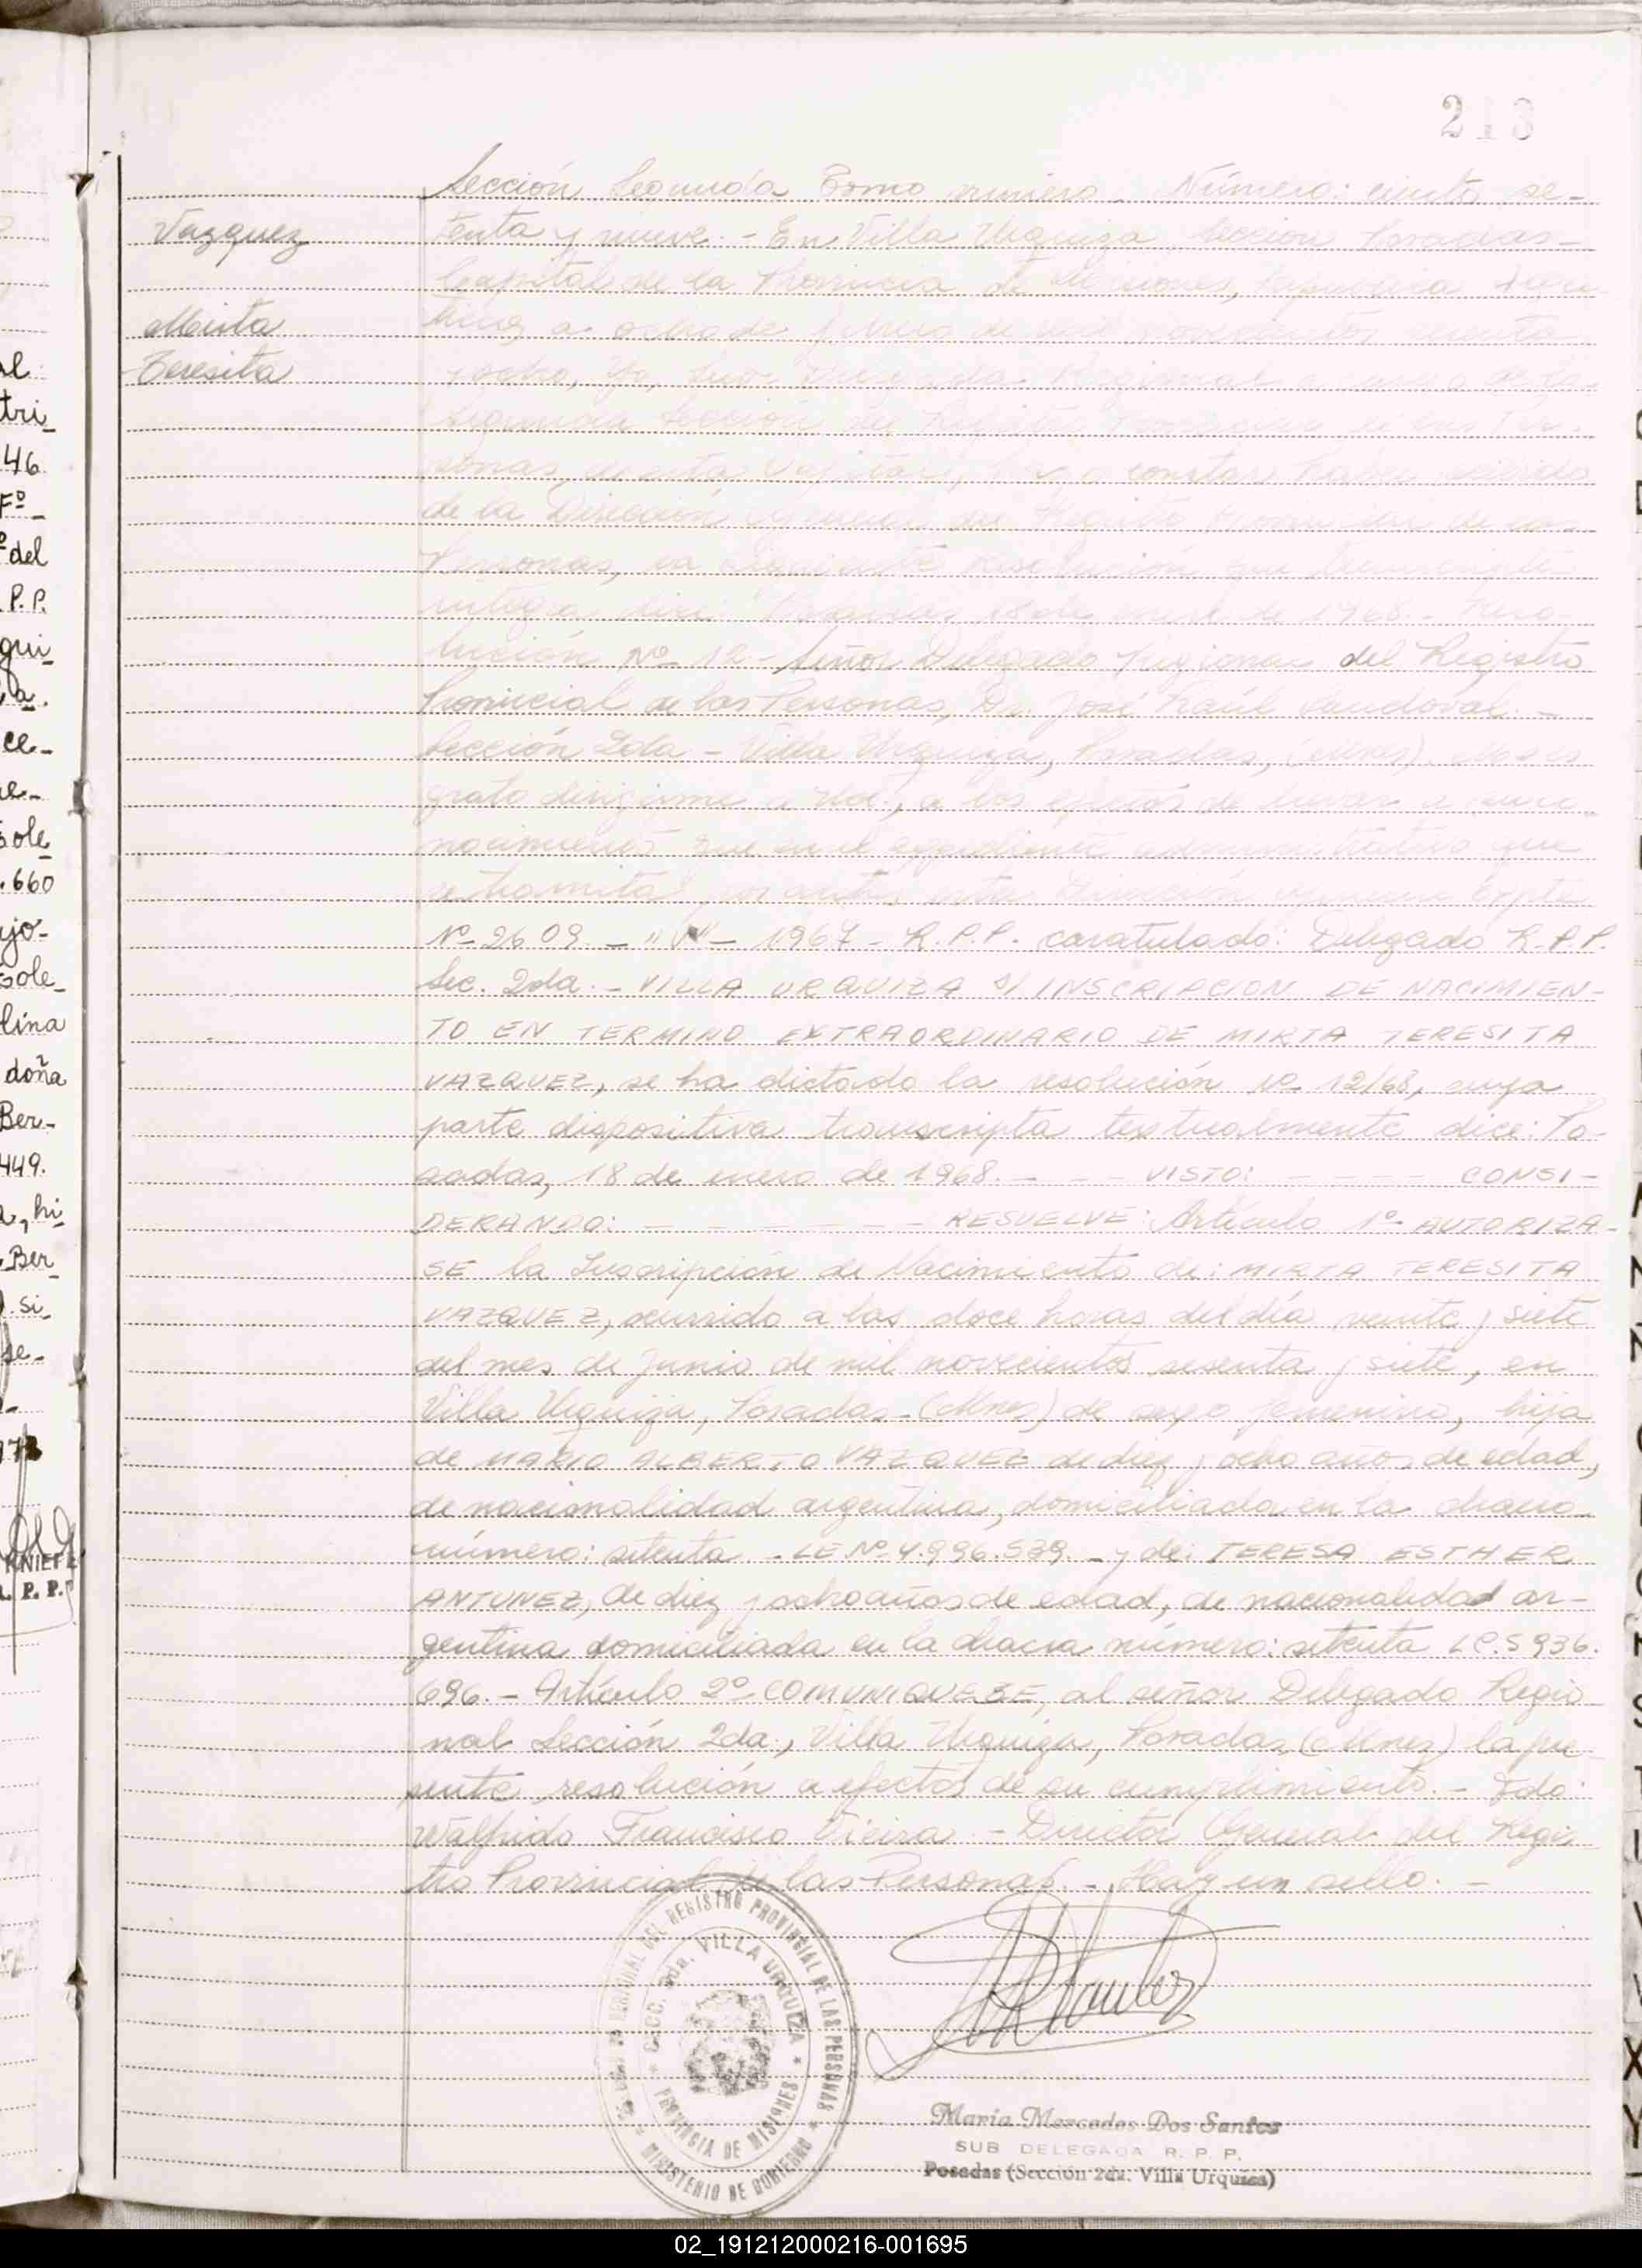 213
Sección Segunda Tomo primero. Número: ciento se-
Vazquez
tenta y nueve.- En Villa Urquiza, Sección Posadas-
Capital de la Provincia de Misiones, República Argen
Mirta
tina, a ocho de febrero de mil novecientos sesenta
Teresita
y ocho, Yo, Sub Delegada Regional a cargo de la
Segunda Sección del Registro Provincial de las Per-
sonas, hago constar haber recibido
de la Dirección General del Registro Provincial de las
Personas, la siguiente resolución que transcripta
íntegra dice: Posadas, 18 de enero de 1968.- Reso-
lución Nº 12- Señor Delegado Regional del Registro
Provincial de las Personas, Dn. José Raúl Sandoval.-
Sección 2da - Villa Urquiza, Posadas, (Mnes).
grato dirigirme a Ud., a los efectos de llevar a su co
nocimiento que en el expediente administrativo que
se tramita por ante esta Dirección General Expte
Nº 2609 - "V" - 1967 - R.P.P. caratulado: Delegado R.P.P.
Sec. 2da.- VILLA URQUIZA S/ INSCRIPCION DE NACIMIEN-
TO EN TERMINO EXTRAORDINARIO DE MIRTA TERESITA
VAZQUEZ, se ha dictado la resolución Nº 12/68, cuya
parte dispositiva transcripta textualmente dice: Po-
sadas, 18 de enero de 1968. - - - VISTO: - - - - CONSI-
DERANDO: - - - - - - - RESUELVE: Artículo 1º- AUTORIZA-
SE la Inscripción de Nacimiento de: MIRTA TERESITA
VAZQUEZ, ocurrido a las doce horas del día veinte y siete
del mes de Junio de mil novecientos sesenta y siete, en
Villa Urquiza, Posadas-(Mnes) de sexo femenino, hija
de MARIO ALBERTO VAZQUEZ de diez y ocho años de edad,
de nacionalidad argentina, domiciliado en la chacra
número: setenta - LE Nº 4.996.539.- y de: TERESA ESTHER
ANTUNEZ, de diez y ocho años de edad, de nacionalidad ar-
gentina domiciliada en la chacra número: setenta LC.5936.
696.- Artículo 2º- COMUNIQUESE, al señor Delegado Regio
nal Sección 2da., Villa Urquiza, Posadas, (Mnes) la pre
sente resolución a efectos de su cumplimiento.- Fdo:
Walfrido Francisco Vieira.- Director General del Regis
tro Provincial de las Personas.- Hay un sello.-
REGIONAL DEL REGISTRO PROVINCIAL DE LAS PERSONAS
SECC. 2da. VILLA URQUIZA
PROVINCIA DE MISIONES
MINISTERIO DE GOBIERNO
María Mercedes Dos Santos
SUB DELEGADA R. P. P.
Posadas (Sección 2da. Villa Urquiza)
02_191212000216-001695